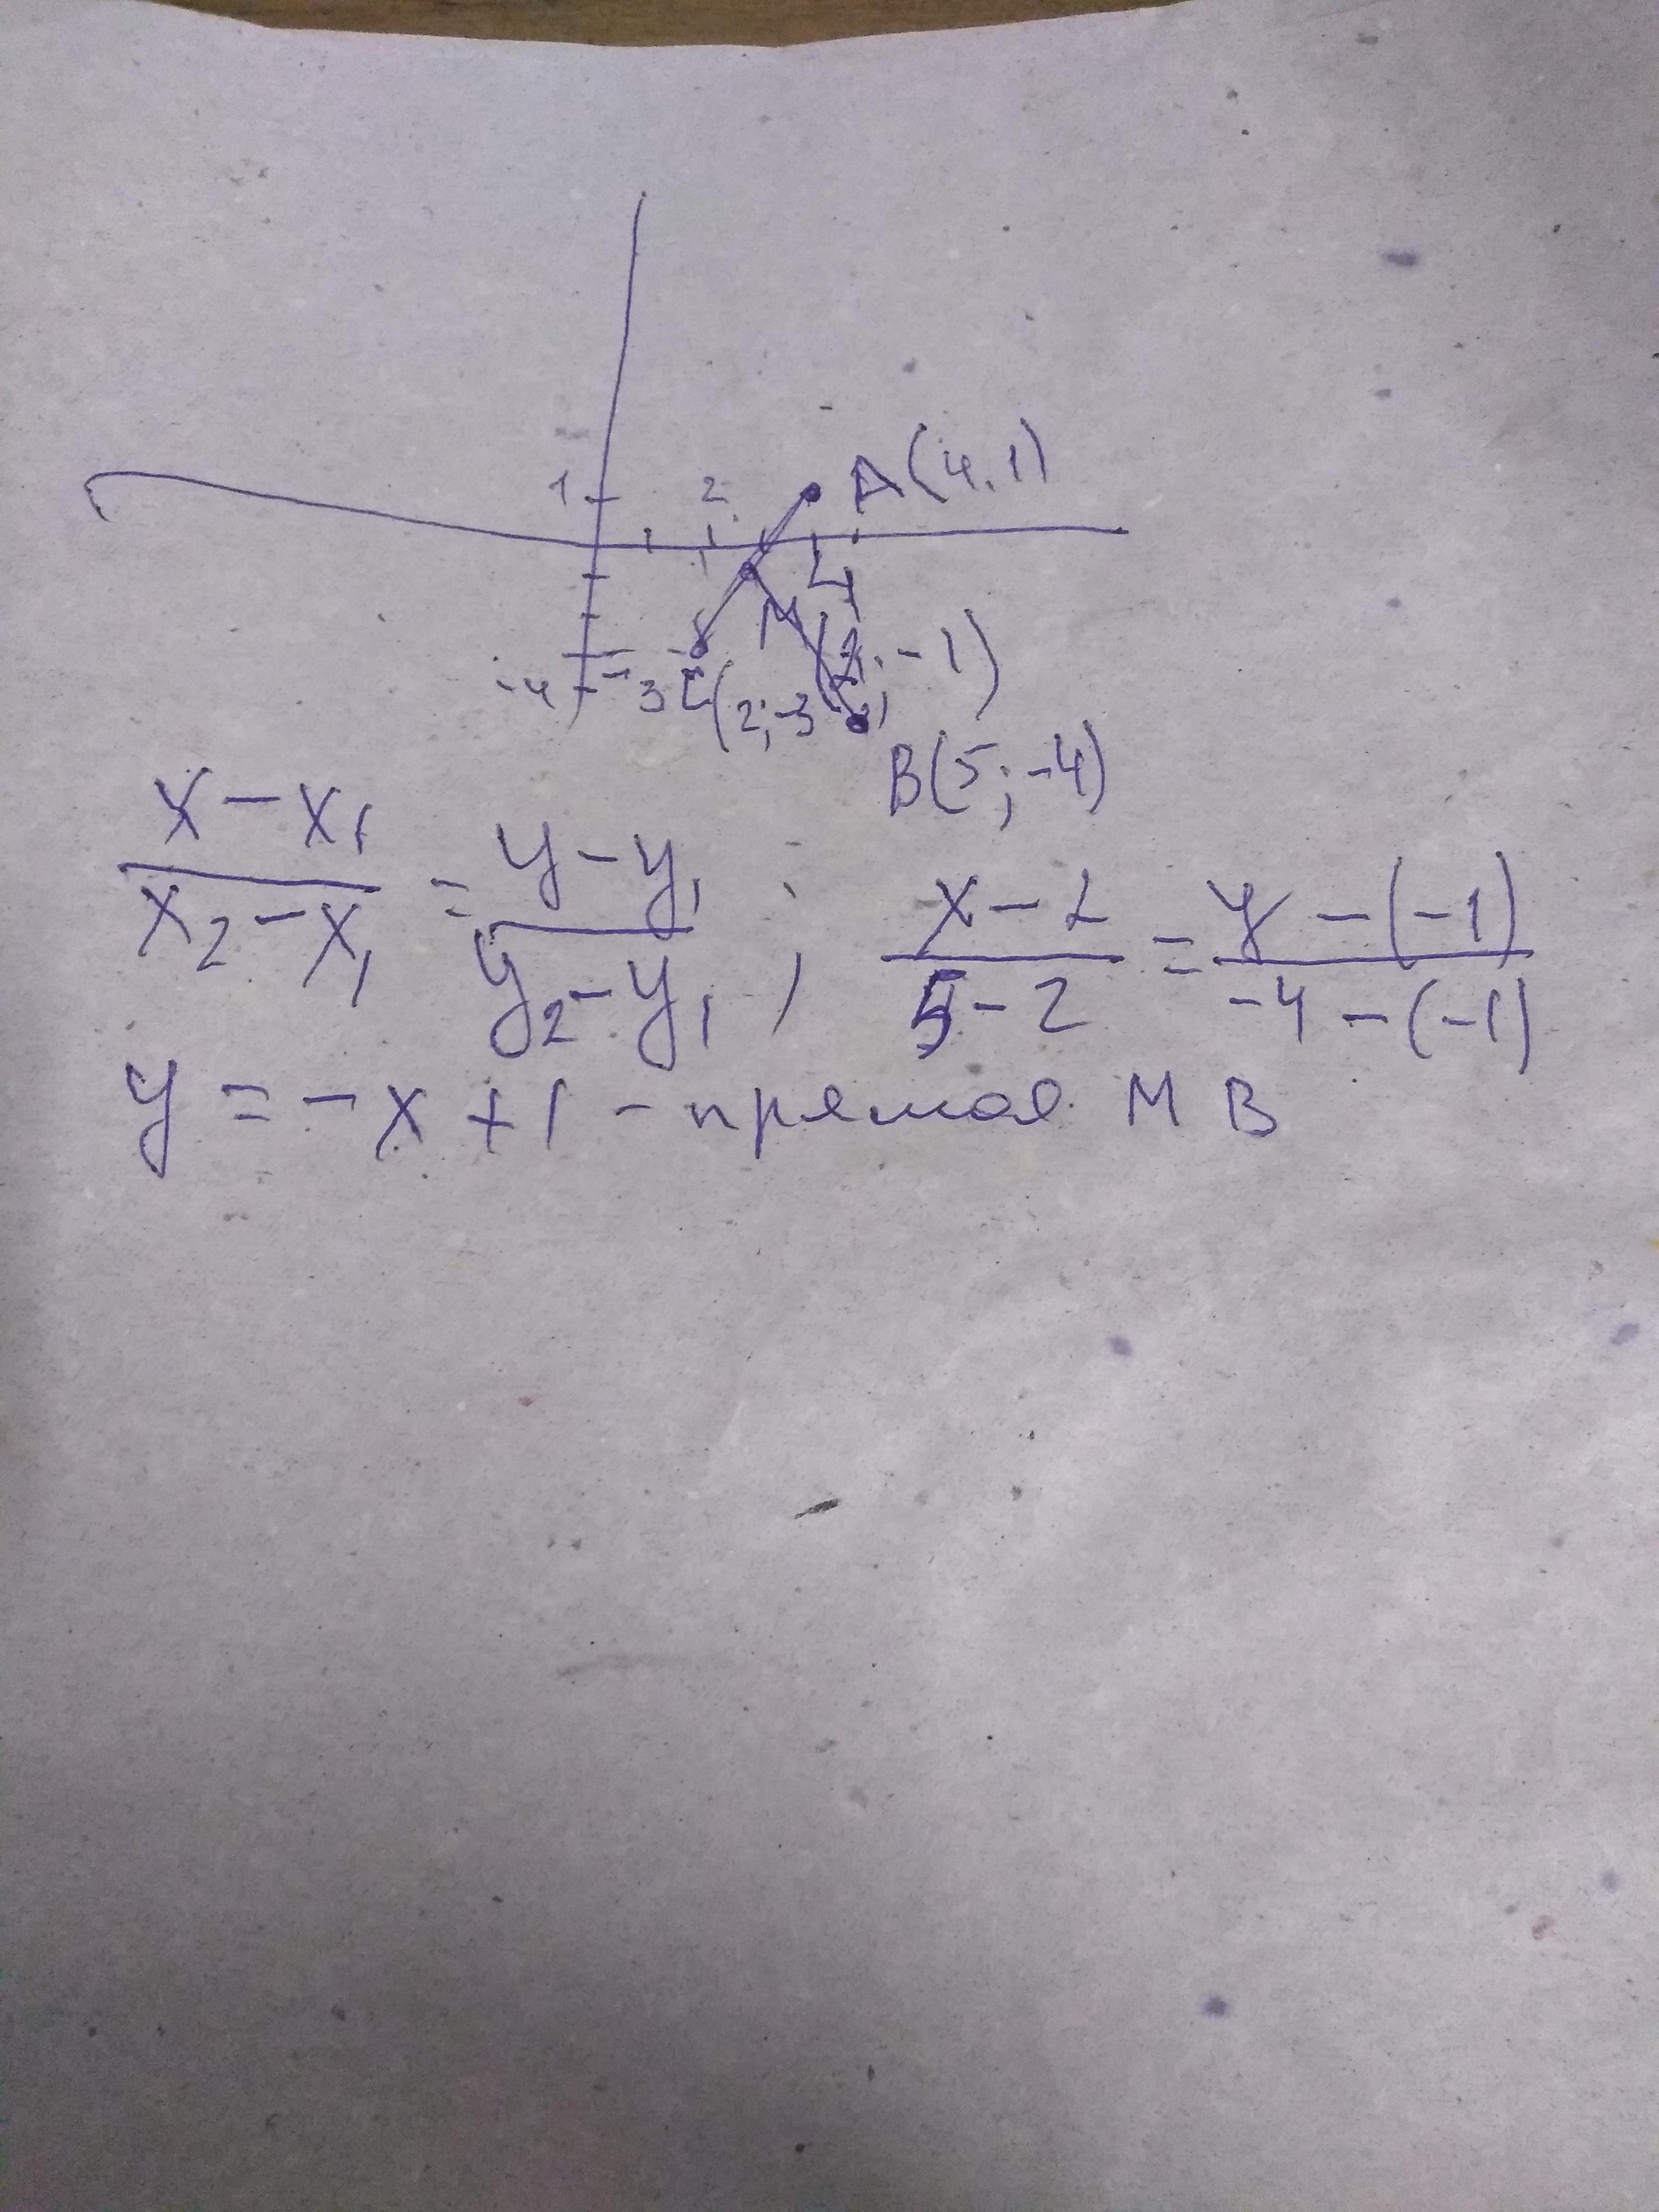 A(4,1)
1 2
4
M(2,-1)
-4 -3 C(2;-3
B(5;-4)
x-x₁/x₂-x₁ = y-y₁/y₂-y₁ ; x-2/5-2 = y-(-1)/-4-(-1)
y=-x+1-прямая МВ